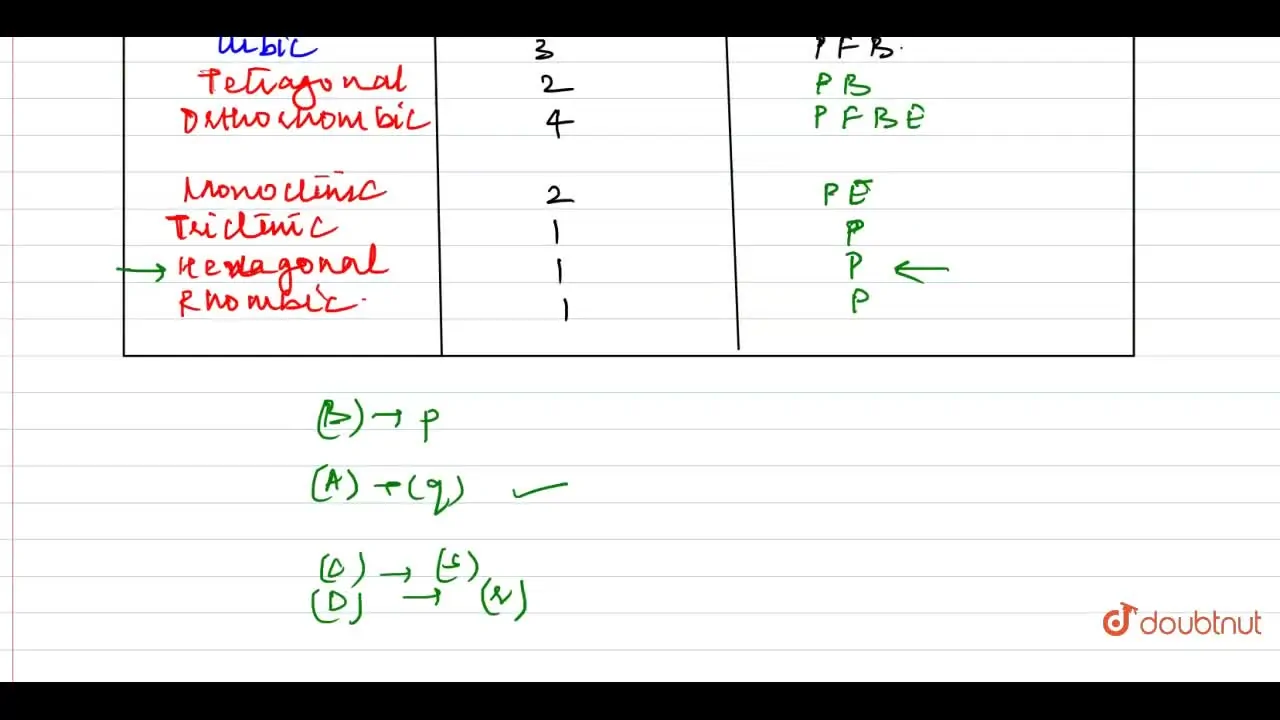 Cubic 3 P F B.
Tetragonal 2 P B
Orthorhombic 4 P F B E
Monoclinic 2 P E
Triclinic 1 P
→ Hexagonal 1 P ←
Rhombic. 1 P
(B) → p
(A) → (q) ✓
(C) → (s)
(D) → (r)
doubtnut